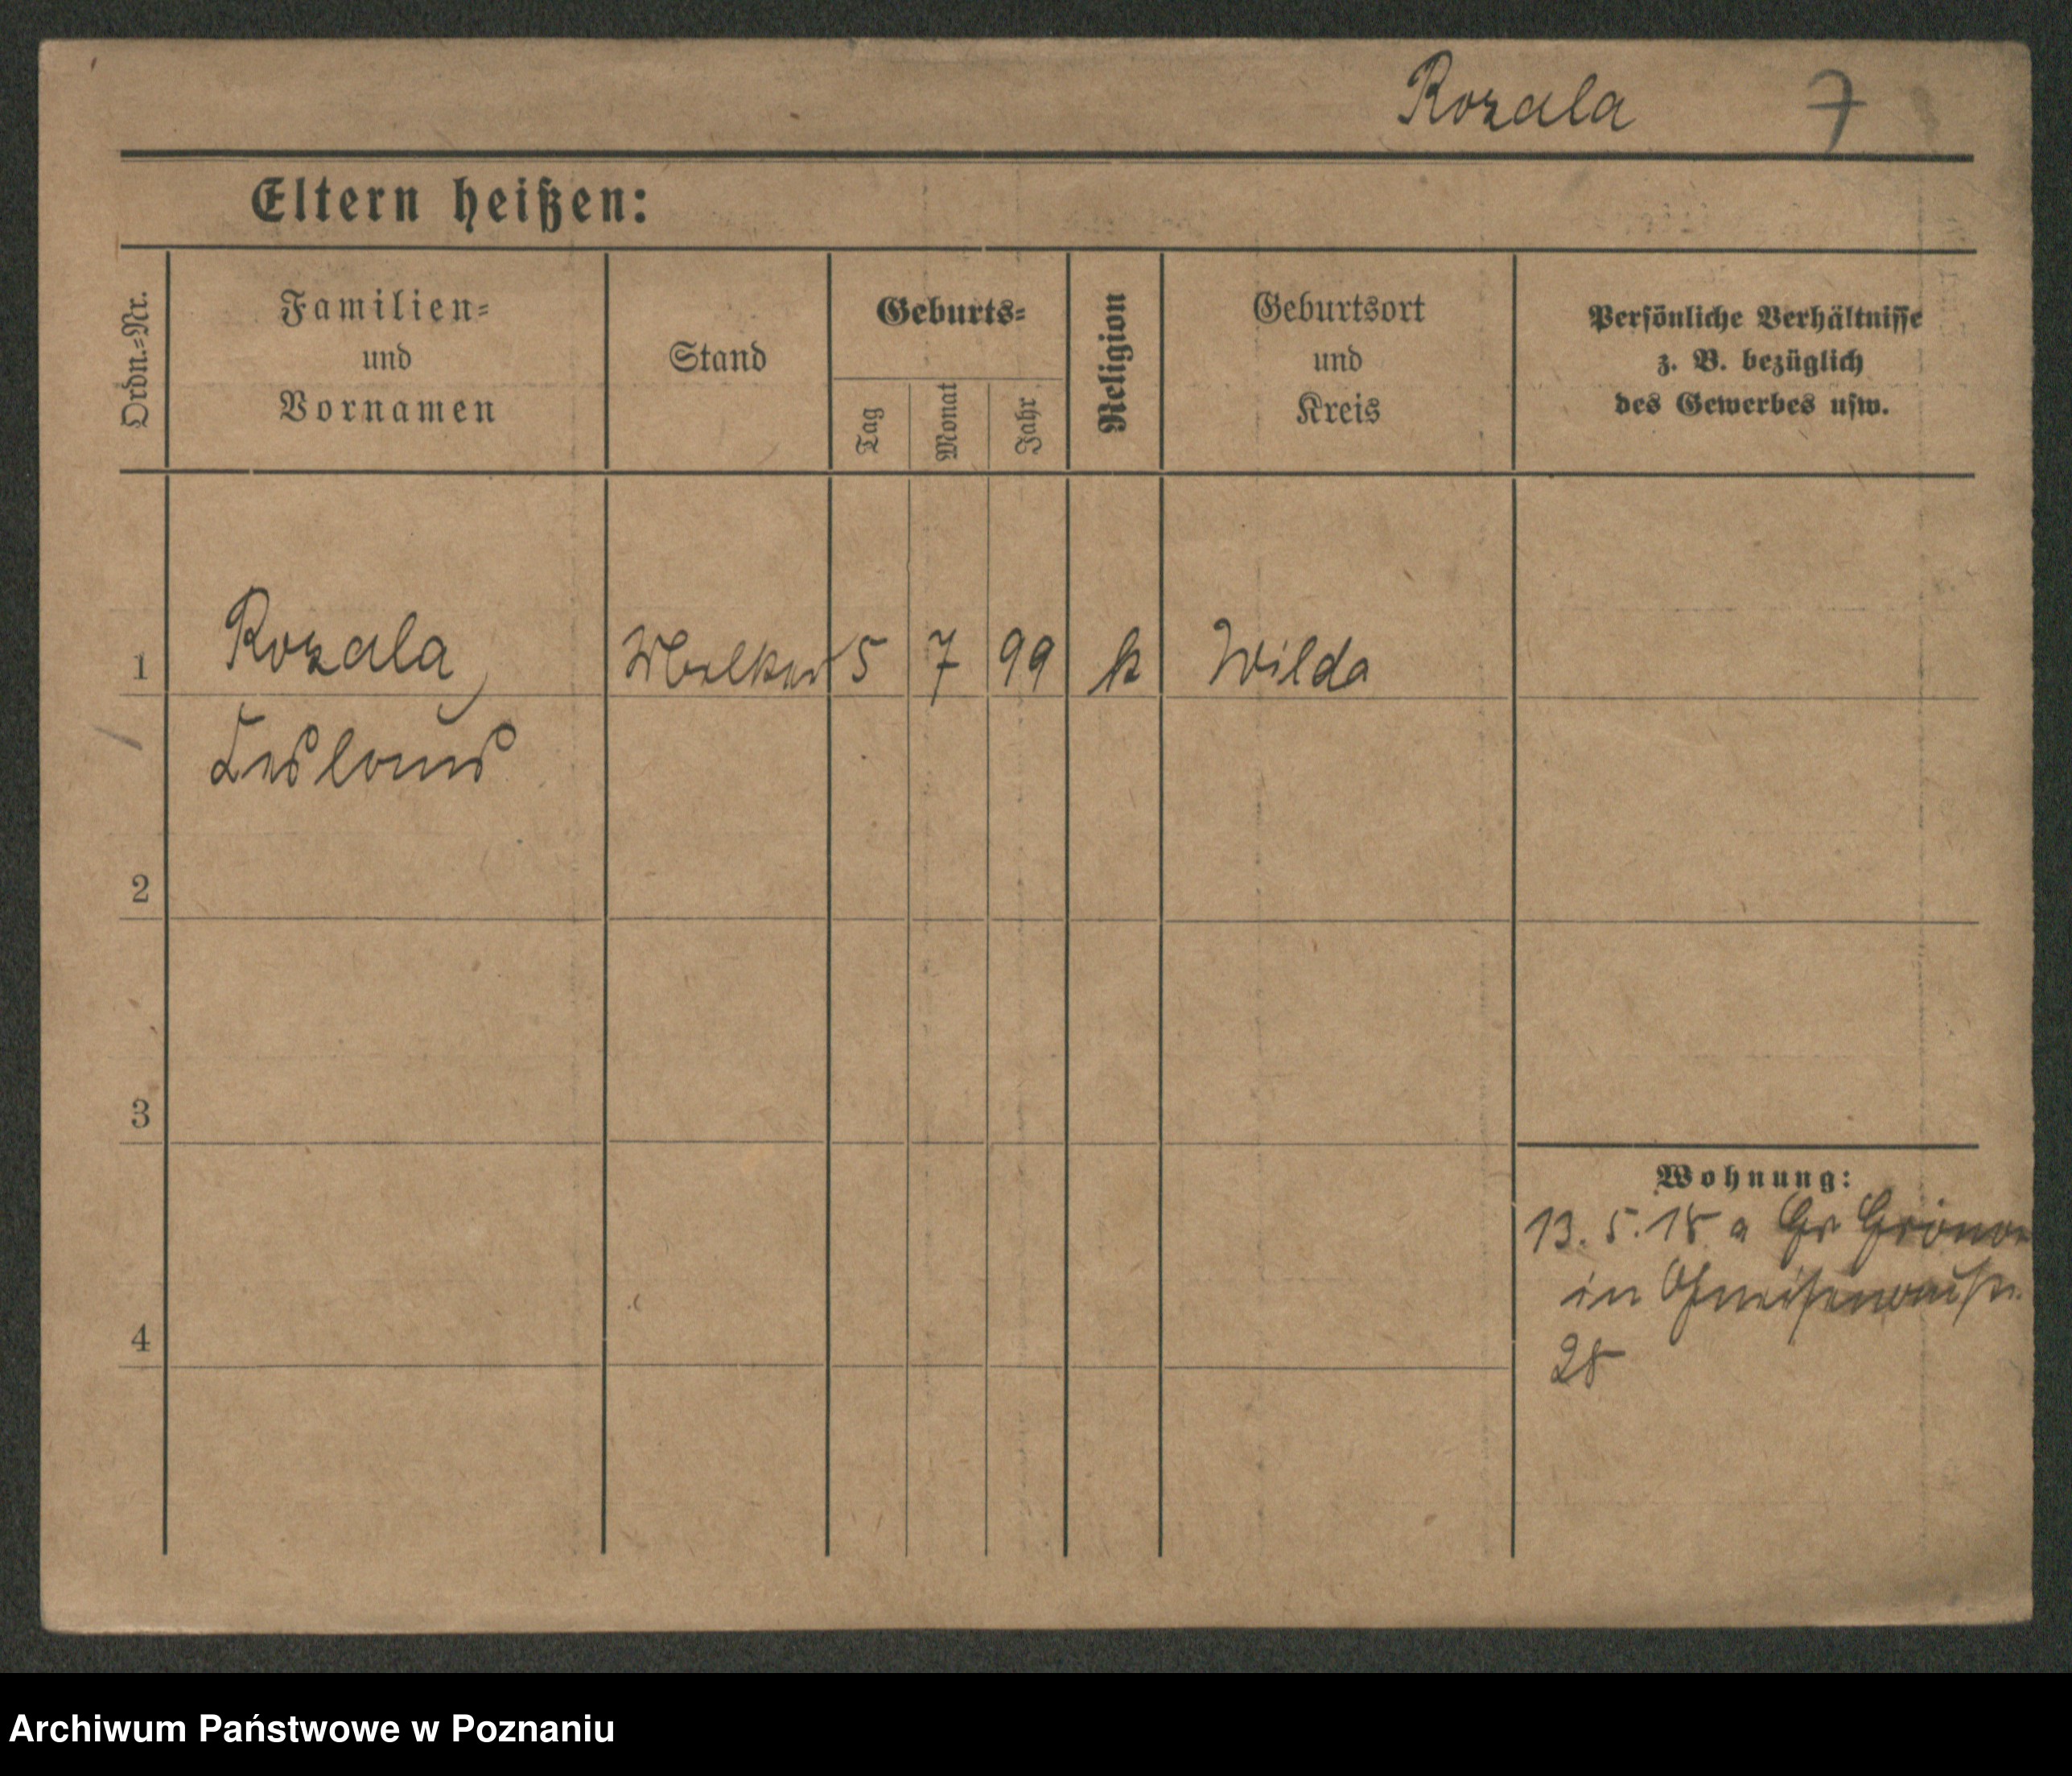 Rozala 7
Eltern heißen:
Ordn.-Nr.
Familien-
und
Vornamen
Stand
Geburts-
Tag
Monat
Jahr
Religion
Geburtsort
und
Kreis
Persönliche Verhältnisse
z. B. bezüglich
des Gewerbes usw.
1 Rozala, 5 7 99 k Wilda
2
3
4
Wohnung:
13. 5. 18 a Gr
in
28
Archiwum Państwowe w Poznaniu